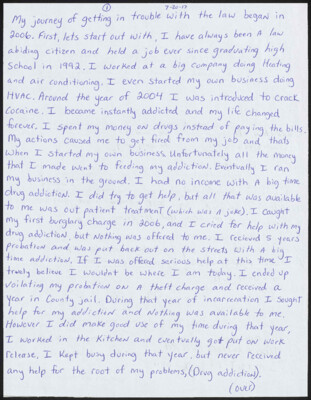 ①
7-20-17
My journey of getting in trouble with the law began in
2006. First, lets start out with, I have always been a law
abiding citizen and held a job ever since graduating high
school in 1992. I worked at a big company doing Heating
and air conditioning. I even started my own business doing
HVAC. Around the year of 2004 I was introduced to crack
cocaine. I became instantly addicted and my life changed
forever. I spent my money on drugs instead of paying the bills.
My actions caused me to get fired from my job and thats
when I started my own business. Unfortunately all the money
that I made went to feeding my addiction. Eventually I ran
my business in the ground. I had no income with a big time
drug addiction. I did try to get help, but all that was available
to me was out patient treatment (which was a joke). I caught
my first burglary charge in 2006, and I cried for help with my
drug addiction but nothing was offered to me. I recieved 5 years
probation and was put back out on the streets with a big
time addiction. If I was offered serious help at this time I
truely believe I wouldnt be where I am today. I ended up
voilating my probation on a theft charge and received a
year in County jail. During that year of incarceration I sought
help for my addiction and nothing was available to me.
However I did make good use of my time during that year,
I worked in the kitchen and eventually got put on work
release. I kept busy during that year, but never received
any help for the root of my problems, (Drug addiction).
(over)